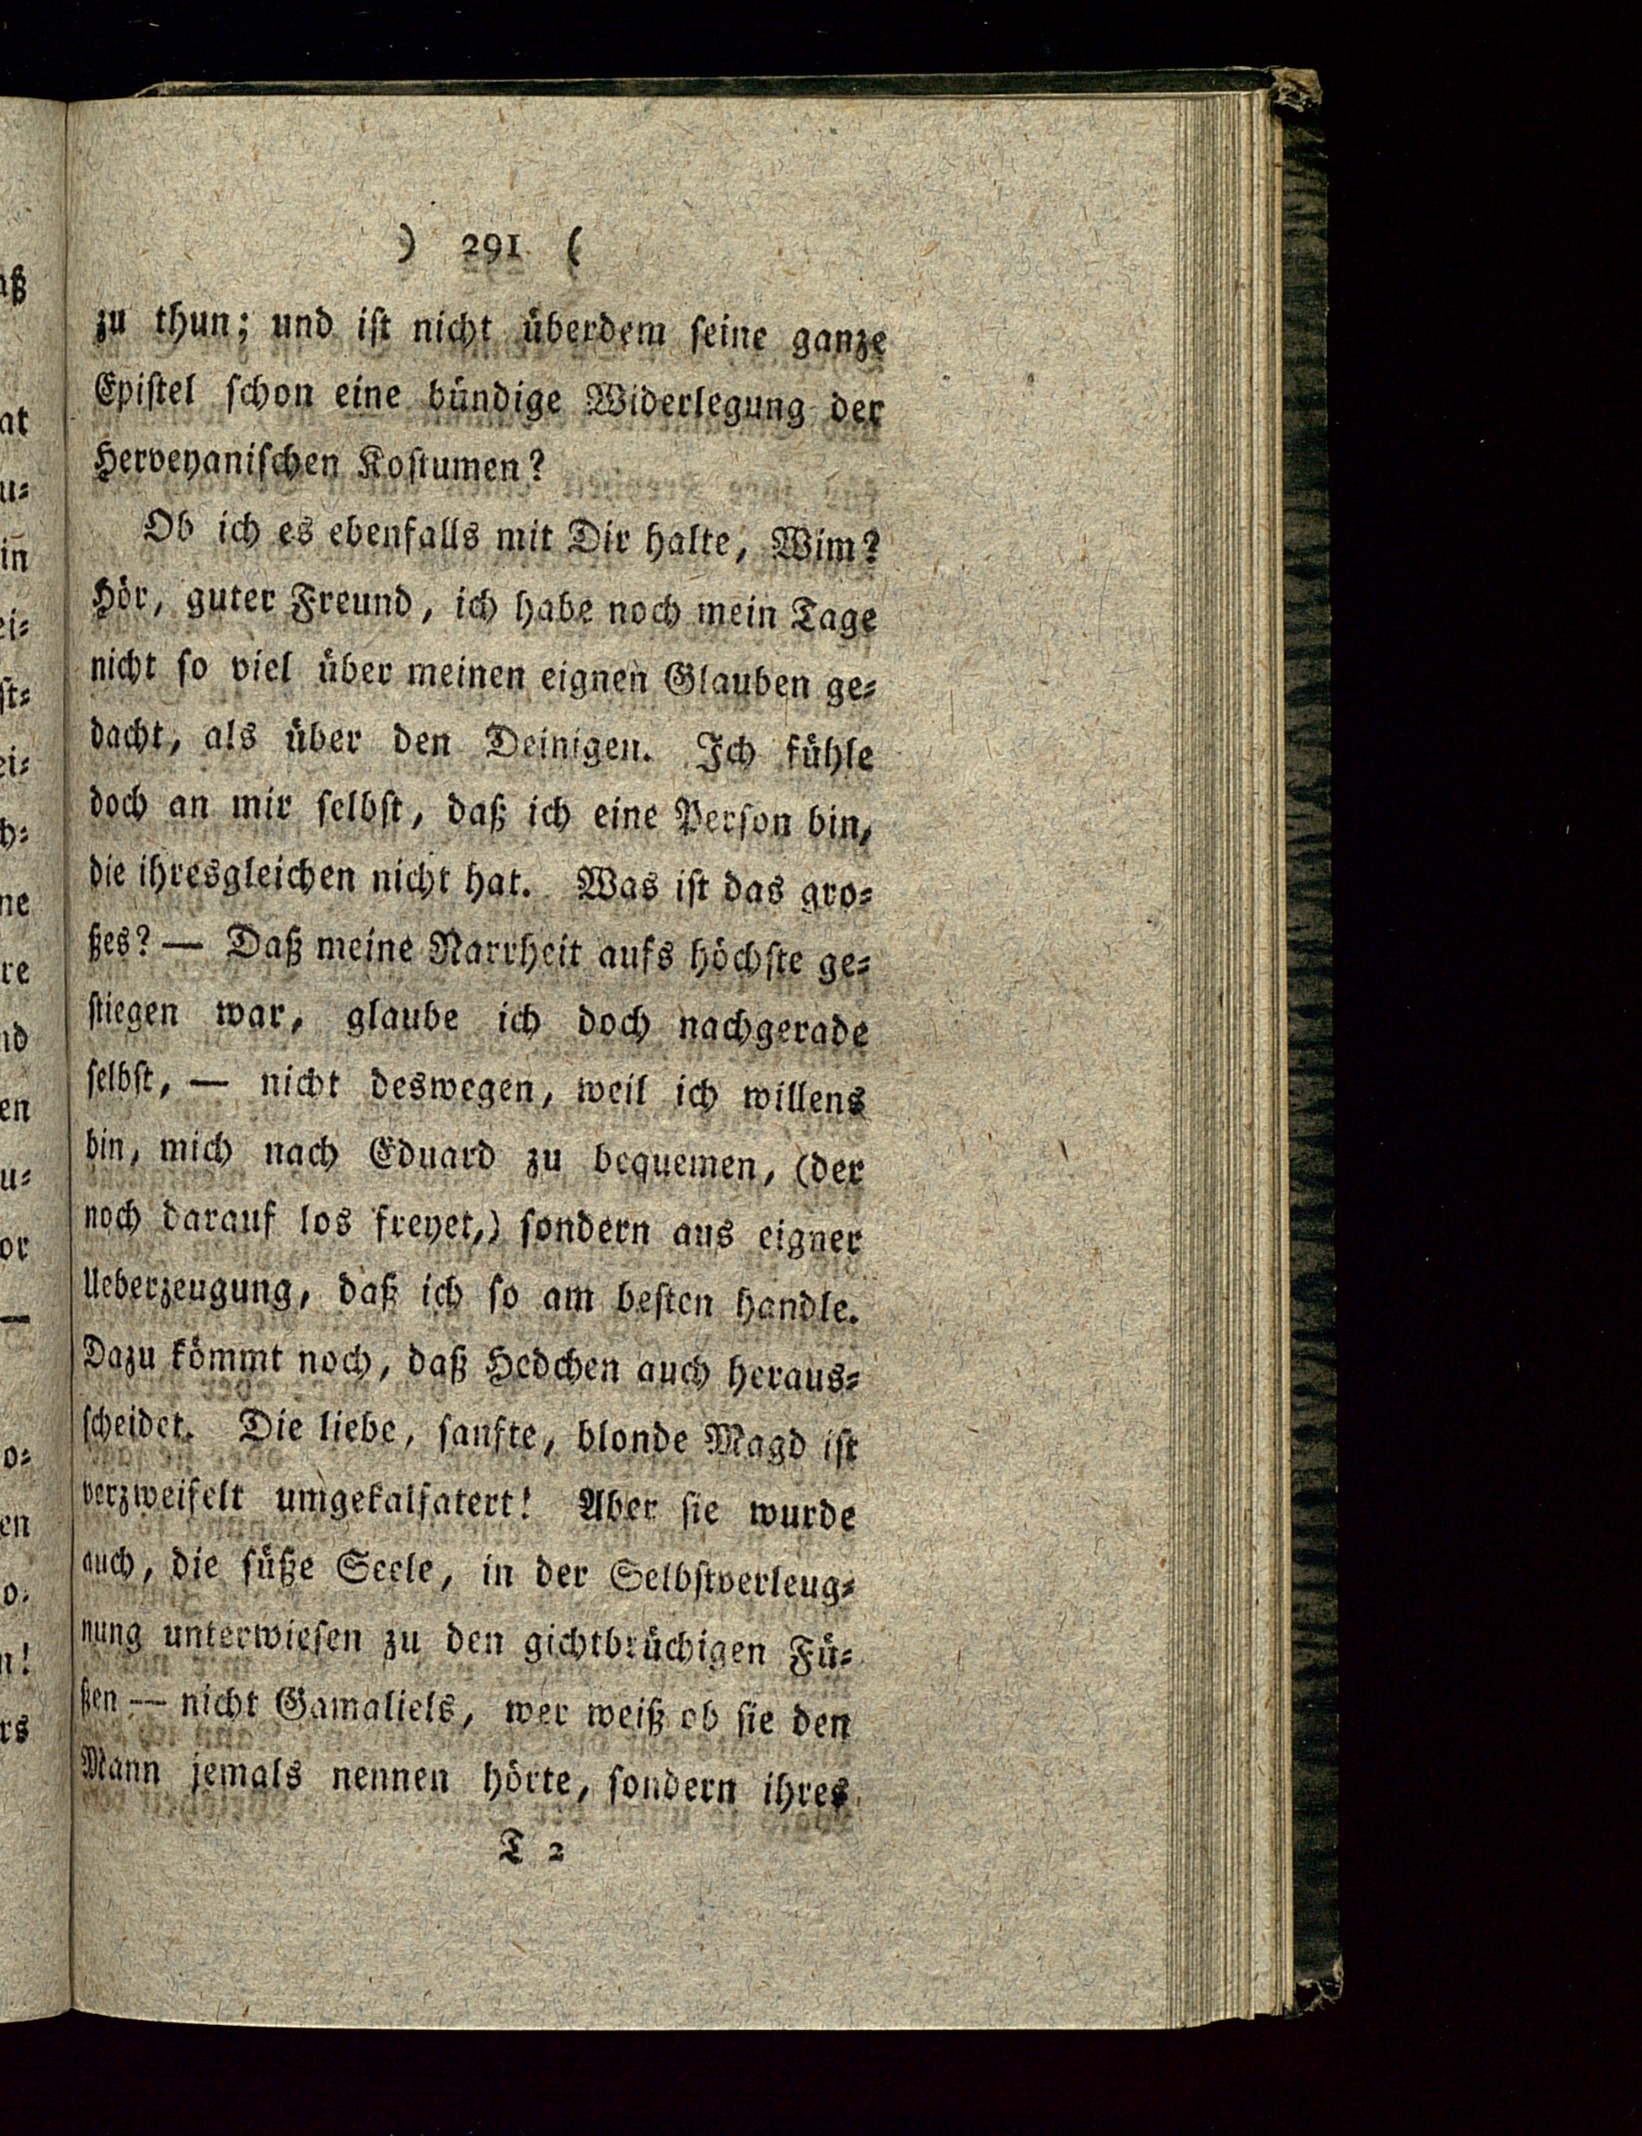 ) 291 (
zu thun; und ist nicht überdem seine ganze
Epistel schon eine bündige Widerlegung der
Herveyanischen Kostumen?
Ob ich es ebenfalls mit Dir halte, Wim?
Hör, guter Freund, ich habe noch mein Tage
nicht so viel über meinen eignen Glauben ge-
dacht, als über den Deinigen. Ich fühle
doch an mir selbst, daß ich eine Person bin,
die ihresgleichen nicht hat. Was ist das gro-
ßes? — Daß meine Narrheit aufs höchste ge-
stiegen war, glaube ich doch nachgerade
selbst, — nicht deswegen, weil ich willens
bin, mich nach Eduard zu bequemen, (der
noch darauf los freyet,) sondern aus eigner
Ueberzeugung, daß ich so am besten handle.
Dazu kömmt noch, daß Hedchen auch heraus-
scheidet. Die liebe, sanfte, blonde Magd ist
verzweifelt umgekalfatert! Aber sie wurde
auch, die süße Seele, in der Selbstverleug-
nung unterwiesen zu den gichtbrüchigen Fü-
ßen — nicht Gamaliels, wer weiß ob sie den
Mann jemals nennen hörte, sondern ihres
T 2